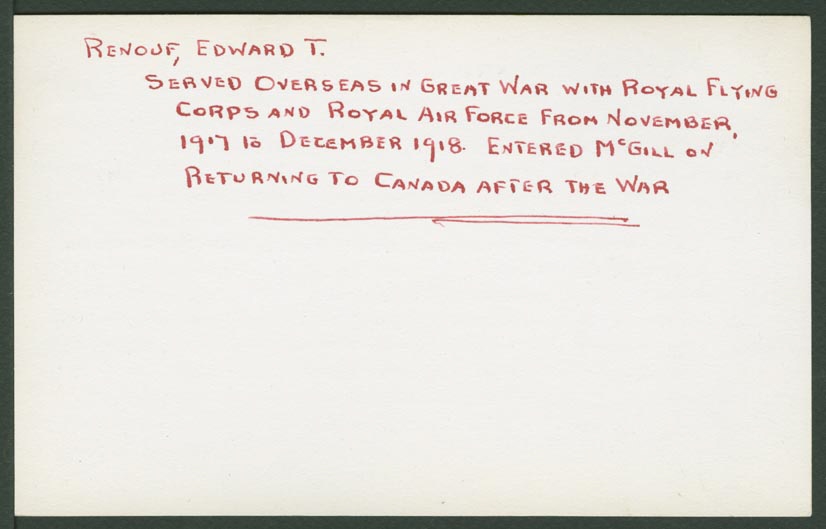 RENOUF, EDWARD T.
SERVED OVERSEAS IN GREAT WAR WITH ROYAL FLYING
CORPS AND ROYAL AIR FORCE FROM NOVEMBER,
1917 TO DECEMBER 1918. ENTERED McGILL ON
RETURNING TO CANADA AFTER THE WAR